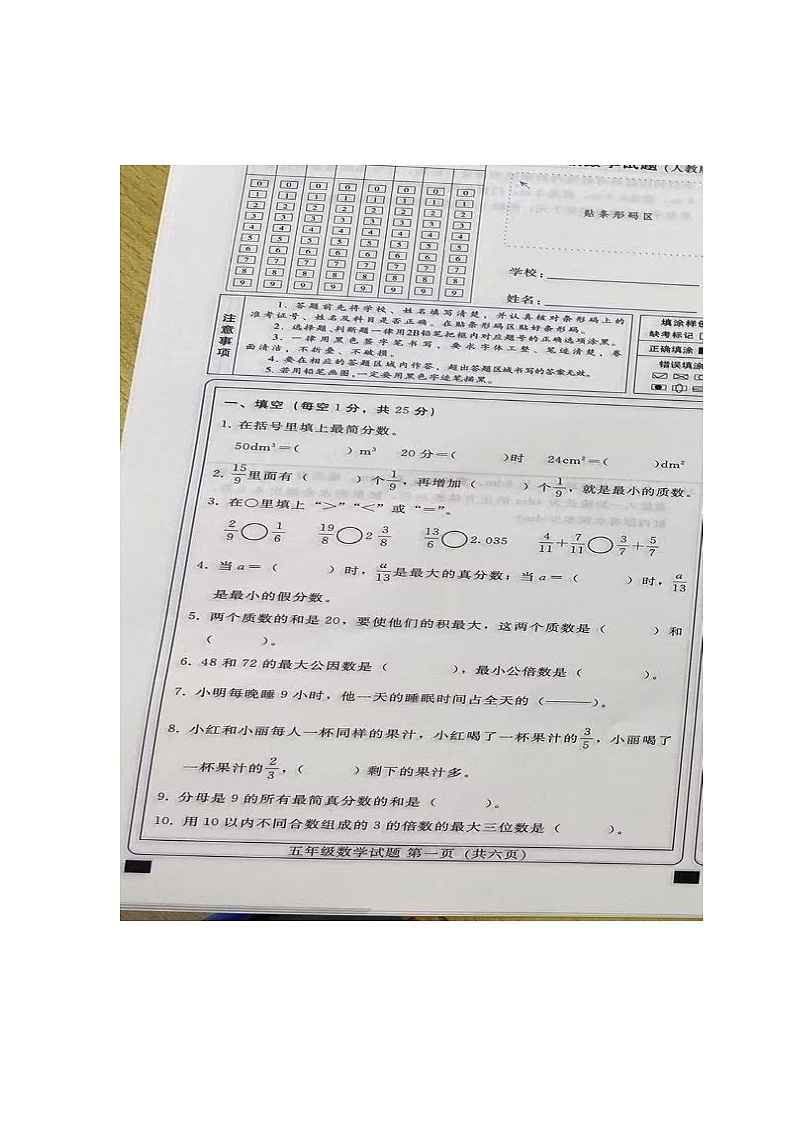 试题（人教
0 0 0 0 0 0 0
1 1 1 1 1 1 1
2 2 2 2 2 2 2
3 3 3 3 3 3 3
4 4 4 4 4 4 4
5 5 5 5 5 5 5
6 6 6 6 6 6 6
7 7 7 7 7 7 7
8 8 8 8 8 8 8
9 9 9 9 9 9 9
贴条形码区
学校：
姓名：
注意事项
1．答题前先将学校、姓名填写清楚，并认真核对条形码上的
准考证号、姓名及科目是否正确。在贴条形码区贴好条形码。
2．选择题、判断题一律用2B铅笔把框内对应题号的正确选项涂黑。
3．一律用黑色签字笔书写，要求字体工整、笔迹清楚，卷
面清洁，不折叠、不破损。
4．要在相应的答题区域内作答，超出答题区域书写的答案无效。
5．若用铅笔画图，一定要用黑色字迹笔描黑。
填涂样
缺考标记
正确填涂
错误填涂
一、填空（每空1分，共25分）
1．在括号里填上最简分数。
50dm³＝（　　）m³　20分＝（　　）时　24cm²＝（　　）dm²
2．15/9里面有（　　）个1/9，再增加（　　）个1/9，就是最小的质数。
3．在○里填上“＞”“＜”或“＝”。
2/9○1/6　19/8○2 3/8　13/6○2.035　4/11＋7/11○3/7＋5/7
4．当a＝（　　）时，a/13是最大的真分数；当a＝（　　）时，a/13
是最小的假分数。
5．两个质数的和是20，要使他们的积最大，这两个质数是（　　）和
（　　）。
6．48和72的最大公因数是（　　），最小公倍数是（　　）。
7．小明每晚睡9小时，他一天的睡眠时间占全天的（——）。
8．小红和小丽每人一杯同样的果汁，小红喝了一杯果汁的3/5，小丽喝了
一杯果汁的2/3，（　　）剩下的果汁多。
9．分母是9的所有最简真分数的和是（　　）。
10．用10以内不同合数组成的3的倍数的最大三位数是（　　）。
五年级数学试题 第一页（共六页）